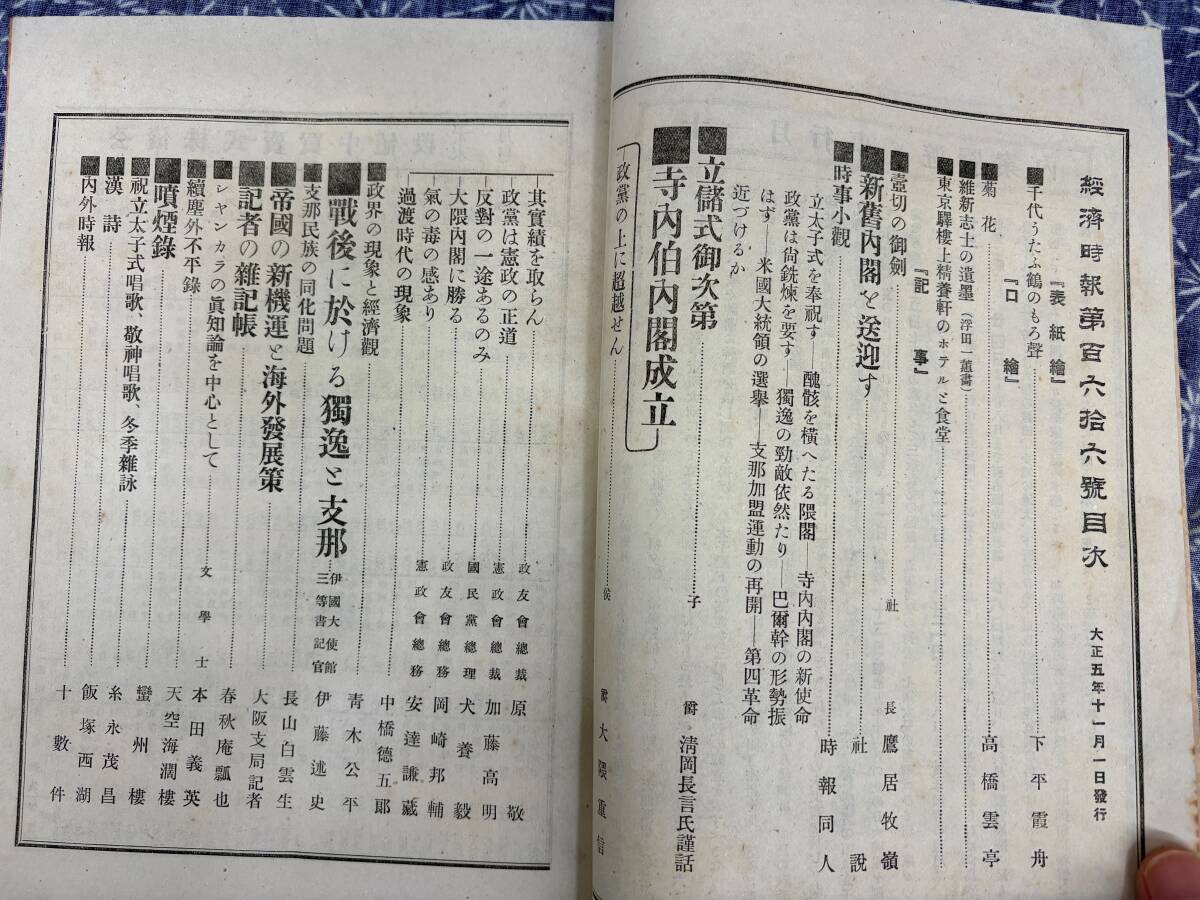 經濟時報第百六拾六號目次
大正五年十一月一日發行
『表紙繪』
■千代うたふ鶴のもろ聲……下平霞舟
『口繪』
■菊花……高橋雲亭
■維新志士の遺墨（浮田一蕙畵）
■東京驛樓上精養軒のホテルと食堂
『記事』
■壺切の御劍……社長 鷹居牧嶺
■新舊内閣を送迎す……社説
■時事小觀……時報同人
立太子式を奉祝す―醜骸を横へたる隈閣―寺内内閣の新使命
政黨は尙銑煉を要す―獨逸の勁敵依然たり―巴爾幹の形勢振
はず―米國大統領の選擧―支那加盟運動の再開―第四革命
近づけるか
■立儲式御次第……子爵 清岡長言氏謹話
■寺内伯内閣成立
政黨の上に超越せん……侯爵 大隈重信
其實績を取らん……政友會總裁 原敬
政黨は憲政の正道……憲政會總裁 加藤高明
反對の一途あるのみ……國民黨總理 犬養毅
大隈内閣に勝る……政友會總務 岡崎邦輔
氣の毒の感あり……憲政會總務 安達謙藏
過渡時代の現象……中橋德五郎
■政界の現象と經濟觀……青木公平
■戰後に於ける獨逸と支那……伊國大使館三等書記官 伊藤述史
■支那民族の同化問題……長山白雲生
■帝國の新機運と海外發展策……大阪支局記者
■記者の雜記帳……春秋庵瓢也
■シヤンカラの眞知論を中心として……文學士 本田義英
■續塵外不平錄……天空海濶樓
■噴煙錄……蠻州樓
■祝立太子式唱歌、敬神唱歌、冬季雜詠……糸永茂昌
■漢詩……飯塚西湖
■内外時報……十數件